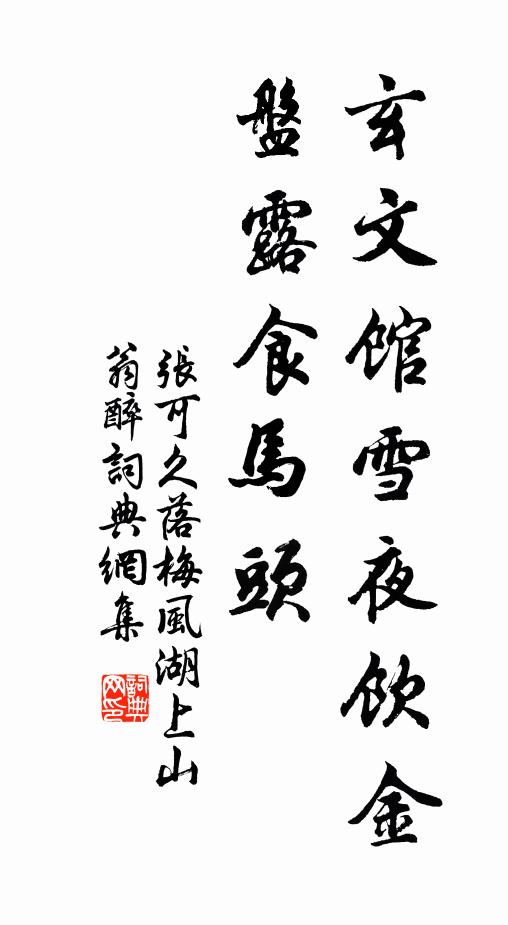 玄文館雪夜飲金
盤露食馬頭
張可久落梅風湖上山
翁醉詞典網集
詞典網印